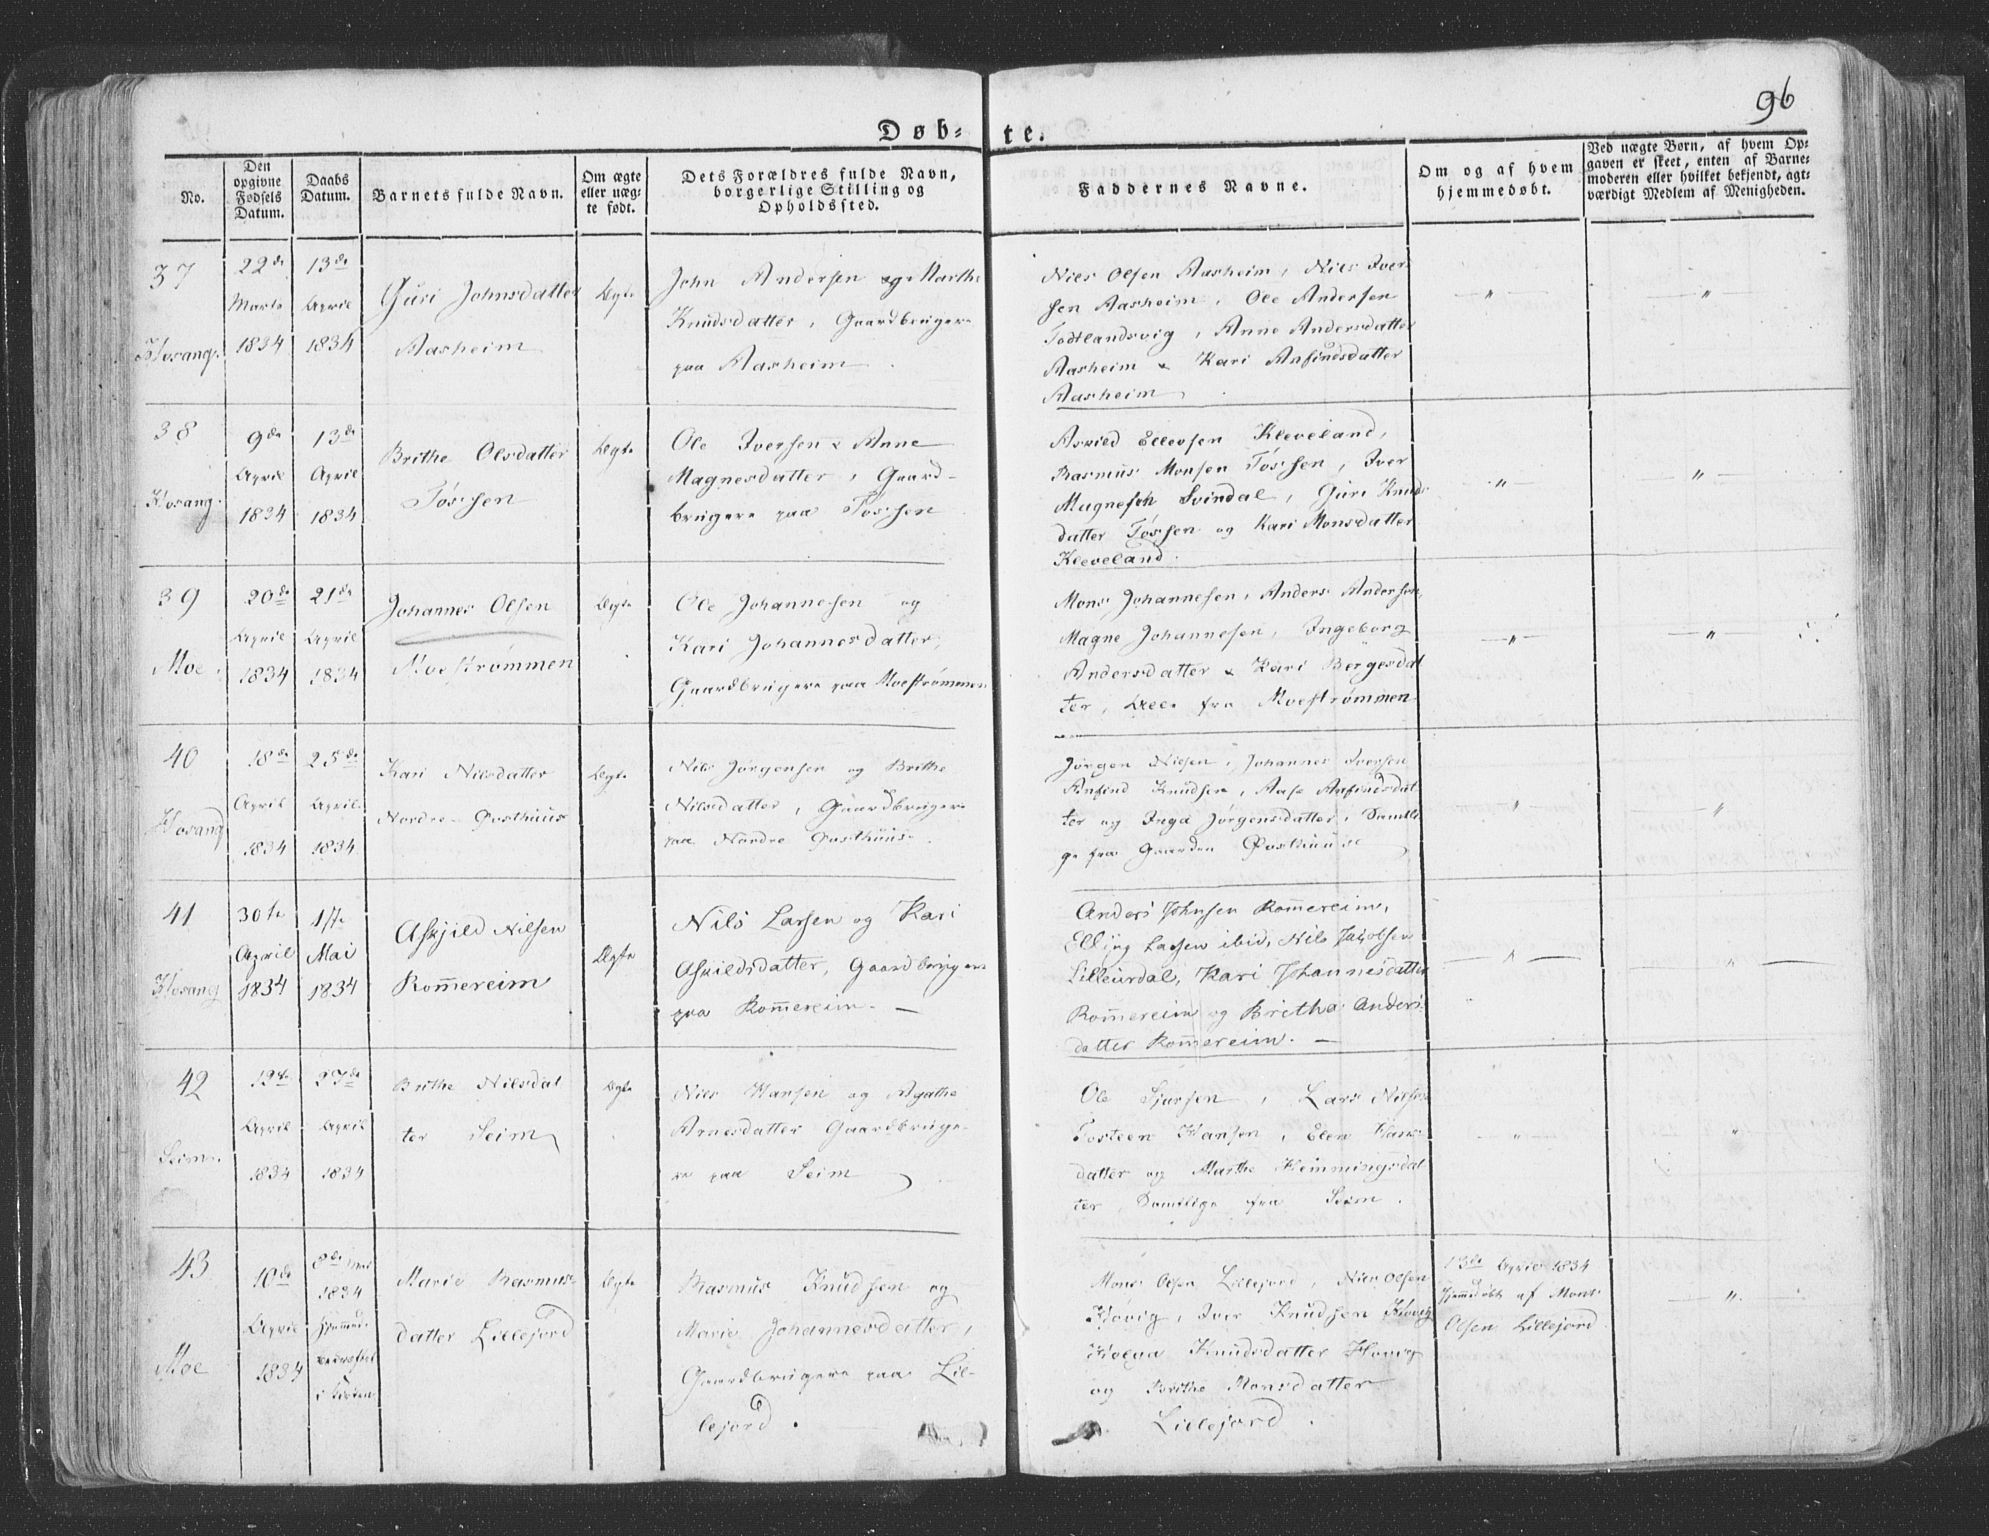 96
Døb-
te.
No.
Den opgivne Fødsels Datum.
Daabs Datum.
Barnets fulde Navn.
Om ægte eller uægte født.
Dets Forældres fulde Navn, borgerlige Stilling og Opholdssted.
Faddernes Navne.
Om og af hvem hjemmedøbt.
Ved uægte Børn, af hvem Opgaven er skeet, enten af Barnemoderen eller hvilket bekjendt, agtværdigt Medlem af Menigheden.
37
Hosang.
22de
Marts
1834
13de
April
1834
Guri Johnsdatter
Aasheim
Ægte
John Andersen og Marthe
Knudsdatter, Gaardbrugere
paa Aasheim
Niels Olsen Aasheim, Nils Iver
sen Aasheim, Ole Andersen
Todtlandsvig, Anne Andersdatter
Aasheim & Kari Anfindsdatter
Aasheim
"
"
38
Hosang.
9de
April
1834
13de
April
1834
Brithe Olsdatter
Tøssen
Ægte
Ole Iversen & Anne
Magnesdatter, Gaard-
brugere paa Tøssen
Askild Ellevsen Kleveland,
Rasmus Monsen Tøssen, Iver
Magnesen Svindal, Guri Knuds
datter Tøssen og Kari Monsdatter
Kleveland.
"
"
39
Moe
20de
April
1834
21de
April
1834
Johannes Olsen
Moestrømmen
Ægte
Ole Johannesen og
Kari Johannesdatter,
Gaardbrugere paa Moestrømmen
Mons Johannesen, Anders Andersen,
Magne Johannesen, Ingeborg
Andersdatter & Kari Børgesdat
ter, Alle fra Moestrømmen
"
"
40
Hosang
18de
April
1834
25de
April
1834
Kari Nilsdatter
Nordre Qvsthuus
Ægte
Nils Jørgensen og Brithe
Nilsdatter, Gaardbrugere
paa Nordre
Jørgen Nilsen, Johannes Iversen
Anfind Knudsen, Aase Anfindsdat
ter og Inga Jørgensdatter, Samtli
ge fra Gaarden
"
"
41
Hosang
30te
April
1834
17de
Mai
1834
Askjild Nilsen
Rom̅ereim
Ægte
Nils Larsen og Kari
Askildsdatter, Gaardbruger
paa Rom̅ereim. —
Anders Johnsen Rom̅ereim,
Elling Larsen ibid, Nils Jacobsen
Lilleurdal, Kari Johannesdatter
Rom̅ereim og Brithe Anders
datter Rom̅ereim. —
"
"
42
Seim.
19de
April
1834
27de
April
1834
Brithe Nilsdat
ter Seim
Ægte
Nils Hansen og Agathe
Arnesdatter Gaardbruge-
re paa Seim
Ole Sjursen, Lars Nilsen
Tosteen Hansen, Elen Hans
datter og Marthe Hemmingsdat
ter, Samtlige fra Seim.
"
"
43
Moe
10de
April
1834
8de Mai
1834
Hjemmed.
bekræftet
i Kirken
Marie Rasmus
datter Lillejord
Ægte
Rasmus Knudsen og
Marie Johannesdatter,
Gaardbrugere paa Lil-
lejord.
Mons Olsen Lillejord Niels Olsen
Hovig, Iver Knudsen Hovig
Helga Knudsdatter Hovig
og Brithe Monsdatter
Lillejord.
13de April 1834
hjemmedøbt af Mons
Olsen Lillejord
"